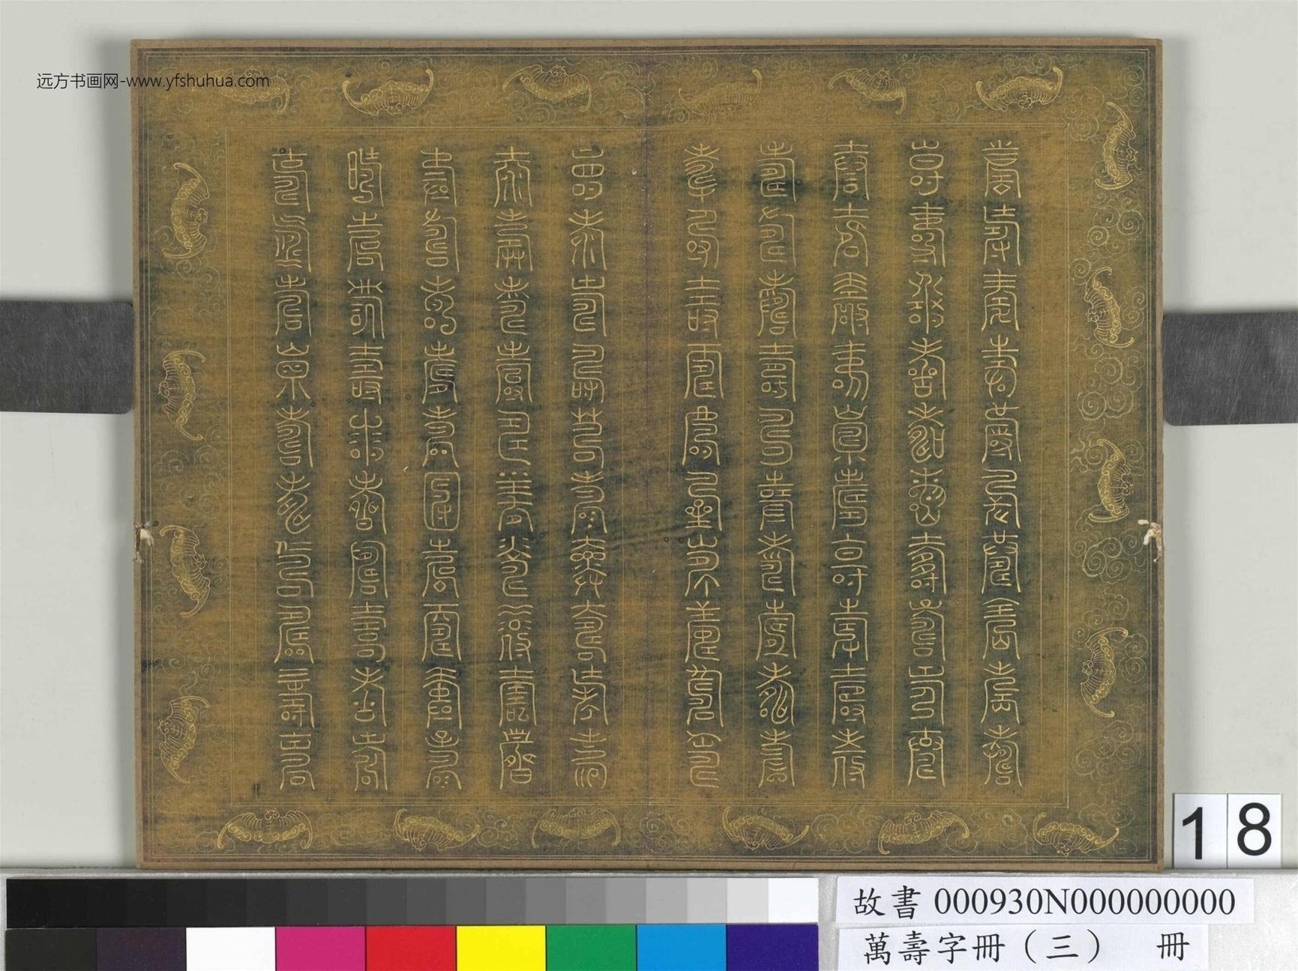 远方书画网-www.yfshuhua.com
壽壽壽壽壽壽壽壽壽壽
壽壽壽壽壽壽壽壽壽壽
壽壽壽壽壽壽壽壽壽壽
壽壽壽壽壽壽壽壽壽壽
壽壽壽壽壽壽壽壽壽壽
壽壽壽壽壽壽壽壽壽壽
壽壽壽壽壽壽壽壽壽壽
壽壽壽壽壽壽壽壽壽壽
壽壽壽壽壽壽壽壽壽壽
壽壽壽壽壽壽壽壽壽壽
18
故書 000930N000000000
萬壽字冊（三） 冊